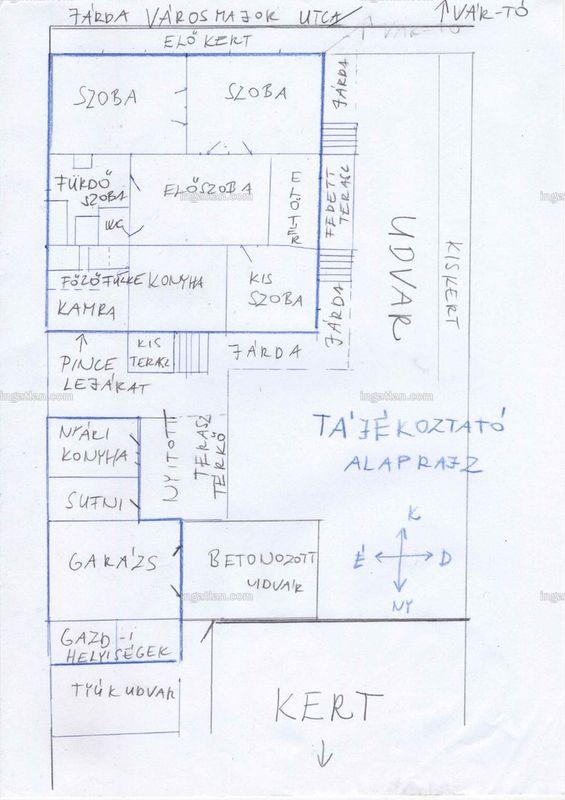 JÁRDA VÁROSMAJOR UTCA
VÁR-TÓ
ELŐKERT
SZOBA
SZOBA
JÁRDA
FÜRDŐ
SZOBA
WC
ELŐSZOBA
ELŐTÉR
FEDETT
TERASZ
UDVAR
KISKERT
FŐZŐFÜLKE KONYHA
KAMRA
KIS
SZOBA
JÁRDA
PINCE
LEJÁRAT
KIS
TERASZ
JÁRDA
ingatlan.com
ingatlan.com
ingatlan.com
NYÁRI
KONYHA
NYITOTT
TERASZ
TÉRKŐ
TÁJÉKOZTATÓ
ALAPRAJZ
SUFNI
GARÁZS
BETONOZOTT
UDVAR
K
É D
NY
ingatlan.com
ingatlan.com
GAZD-I
HELYISÉGEK
TYÚKUDVAR
KERT